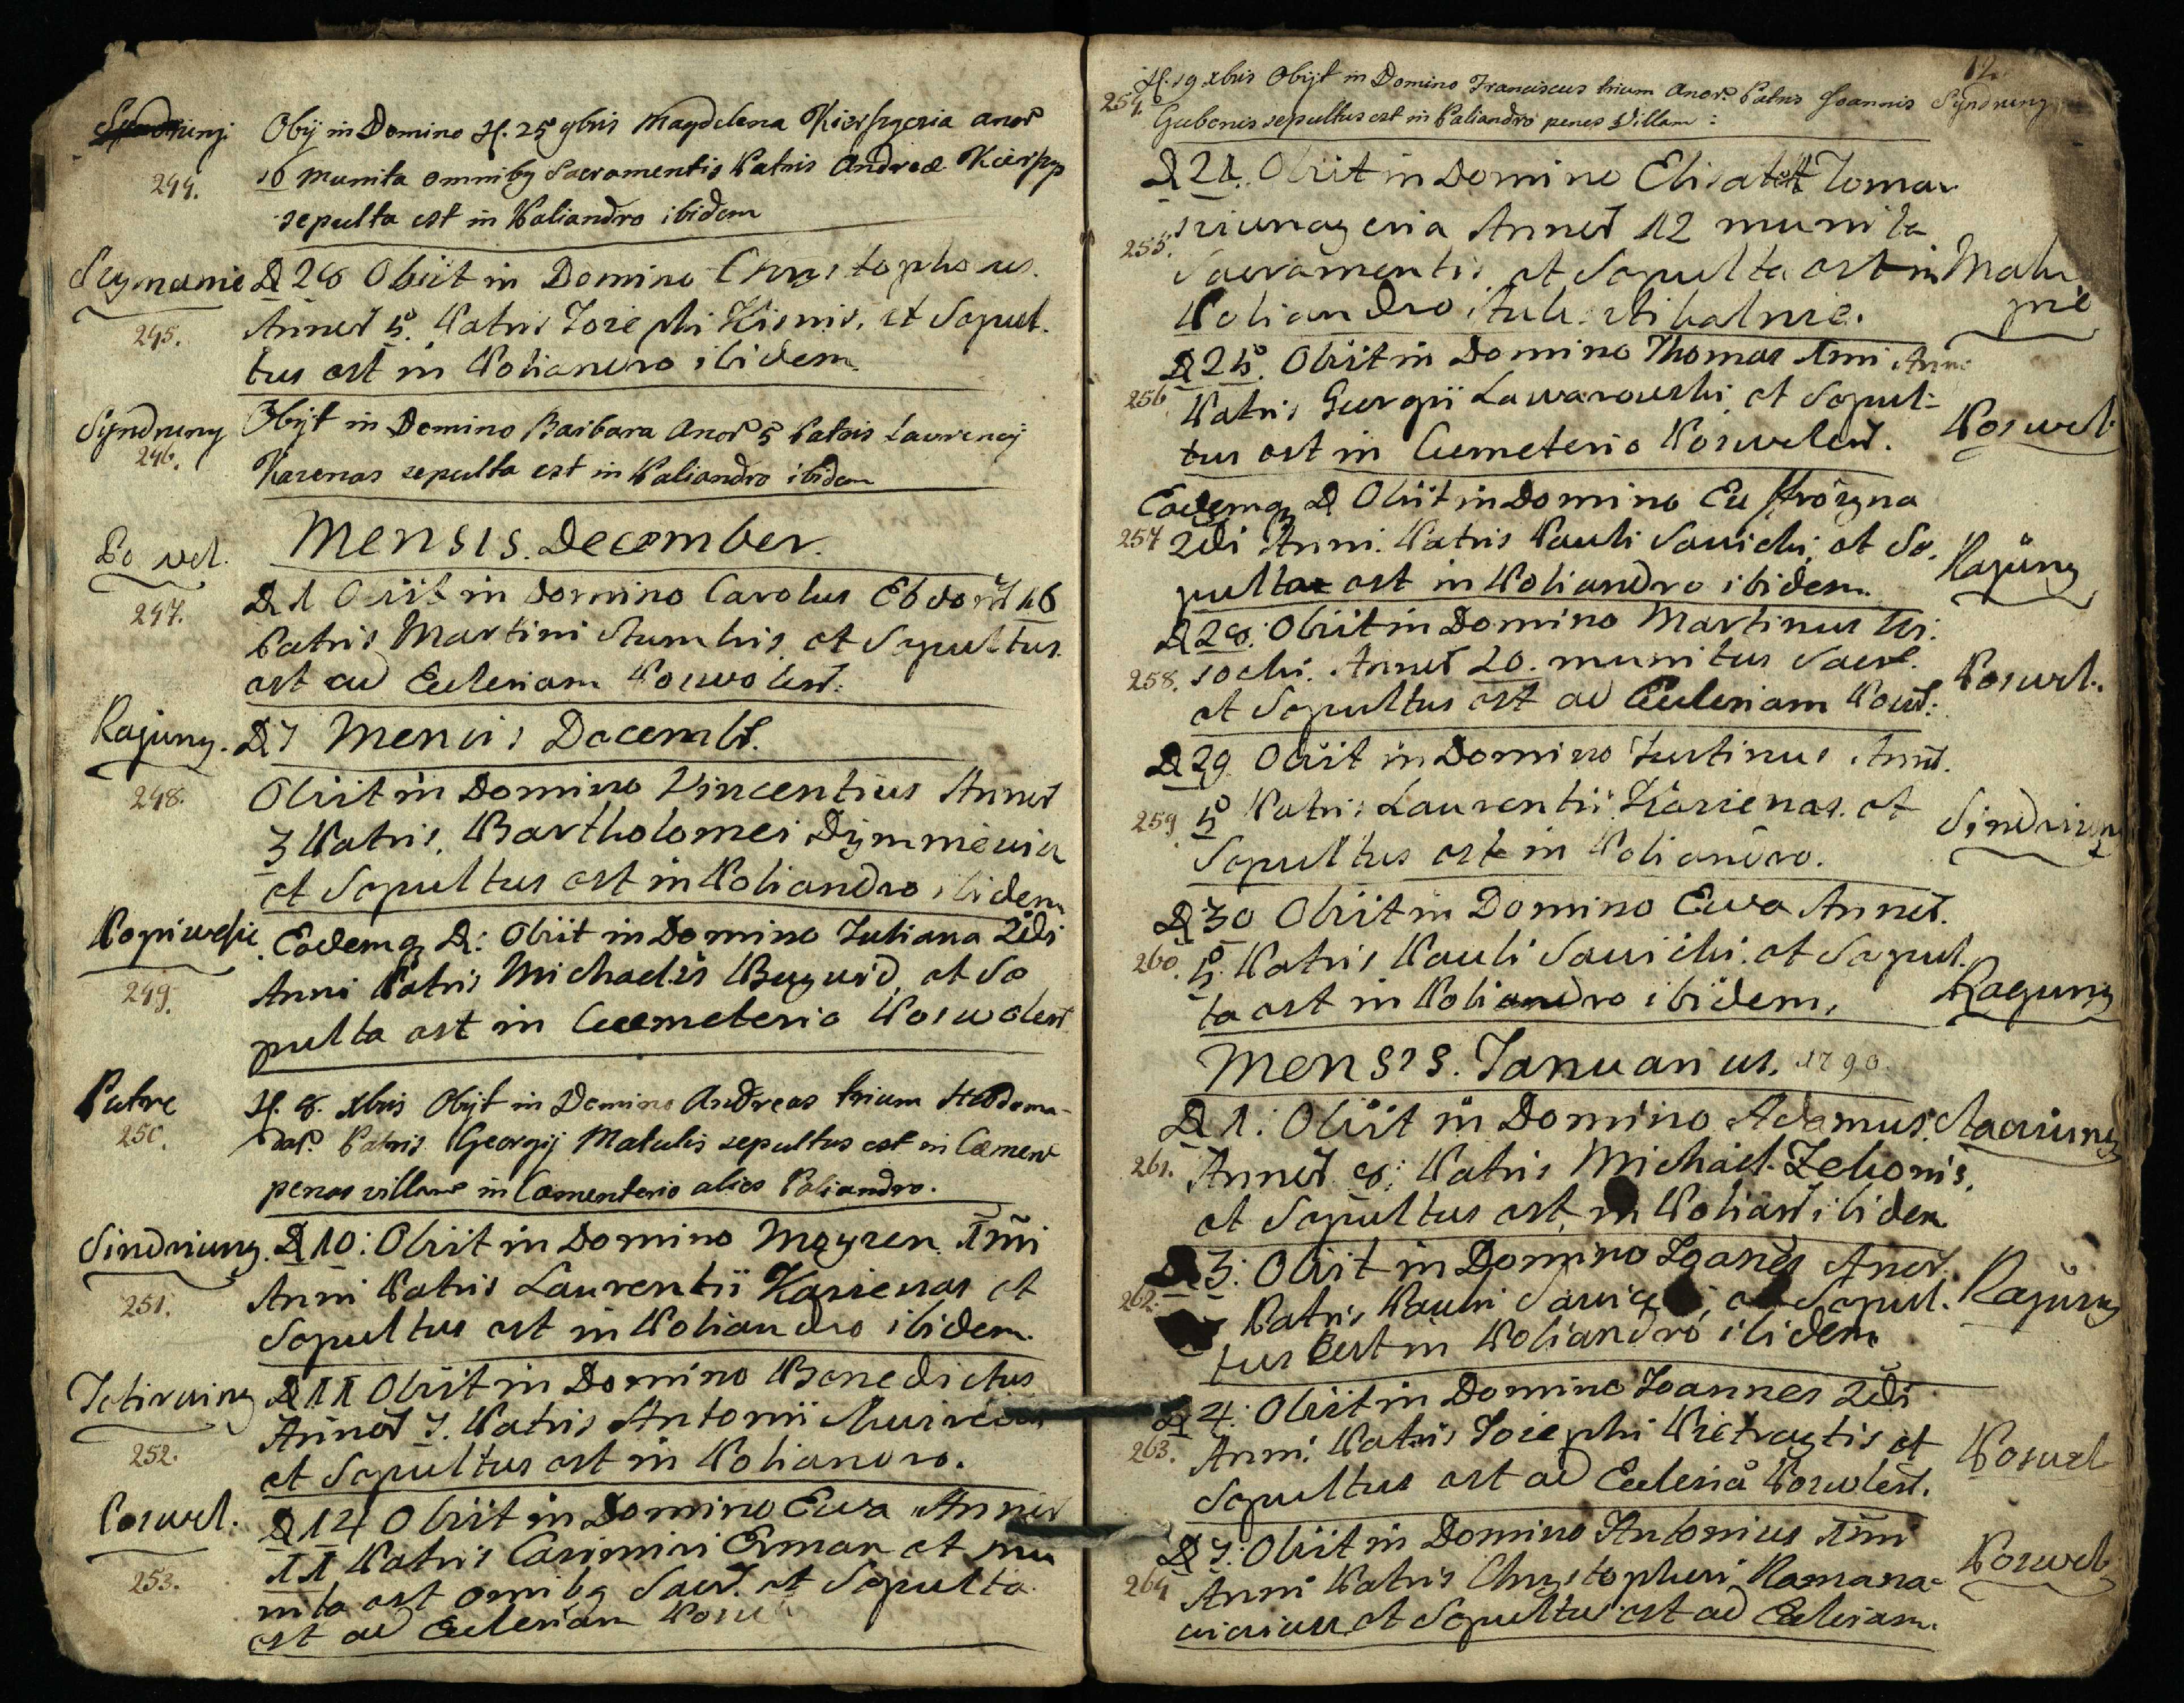 Syndrunj
244.
Obij in Domino H. 25 9bris Magdelena Kierszgeria anor
16 munita omnibq Sacramentis Patris Andreæ Kierszg
sepulta est in Paliandro ibidem
Seymanie
245.
D 28 Obiit in Domino Chrystophorus.
Annor 5. Patris Josephi Kisnis, et Sepul.
tus est in Poliandro ibidem
Syndruny
246.
Obijt in Domino Barbara Anor 5 Patris Laurencij
Karenas sepulta est in Paliandro ibidem
Mensis. December.
Po wel.
247.
D 1 Obiit in Domino Carolus Ebdom 16
Patris Martini Stumbris, et Sepultus
est ad Eclesiam Poswolen.
Rajuny.
D 7 Mensis Decembr.
248.
Obiit in Domino Vincentius Annor
3 Patris, Bartholomei Dymmewicz
et Sepultus est in Poliandro ibidem
249.
Eademq D: Obiit in Domino Juliana 2di
Anni Patris Michaelis Buguid, et Se
pulta est in Cemeterio Poswolen
250.
H. 8. Xbris Obijt in Domino Andreas trium Hebdoma-
dar. Patris Georgij Matulis sepultus est in Cæmen
penes villam in Cæmenterio alias Poliandro.
Sindriuny.
251.
D 10: Obiit in Domino 1mi
Anni Patris Laurentii Karienas et
Sepultus est in Poliandro ibidem.
252.
D 11 Obiit in Domino Benedictus
Annor 7. Patris Antonii
et Sepultus est in Poliandro.
Poswel.
253.
D 12 Obiit in Domino Ewa Annor
11 Patris Casimiri Erman et mu
nita est omnibq Sacr. et Sepulta
est ad Eclesiam Posw
12
254.
H. 19 Xbris Obijt in Domino Franciscus trium Anor. Patris Joannis
Gubenis sepultus est in Paliandro penes Villam :
Syndruny
D 21. Obiit in Domino Elisabeth
255.
Annor 12 munita
Sacramentis, et Sepulta est in
Poliandro
D 25. Obiit in Domino Thomas 1mi Anni
256
Patris Georgii Lawarowski, et Sepul-
tus est in Cemeterio Poswolen.
Poswel.
Eademq D Obiit in Domino Eufrozyna
257
2di Anni. Patris Pauli Sawicki, et Se.
pulta est in Poliandro ibidem.
Rajuny
D 28. Obiit in Domino Martinus
258.
Annor 20. munitus Sacr.
et Sepultus est ad Eclesiam Posw:
Poswel.
D 29 Obiit in Domino Justinus Ann.
259
5 Patris Laurentii Karienas. et
Sepultus est in Poliandro.
Sindriuny
D 30 Obiit in Domino Ewa Annor.
260.
5. Patris Pauli Sawicki. et Sepul.
ta est in Poliandro ibidem.
Rajuny
Mensis. Januarius. 1790
D 1: Obiit in Domino Adamus.
261.
Annor 8: Patris Michael. Zebonis,
et Sepultus est, in Polian ibidem
D 3: Obiit in Domino Joanes Anor.
262.
Patris Pauli Sawicki, et Sepul.
tus est in Poliandro ibidem
Rajuny
D 4: Obiit in Domino Joannes 2di
263.
Anni. Patris Josephi Pietraytis et
Sepultus est ad Eclesia Poswolen.
Poswel
D 7: Obiit in Domino Antonius 1mi
264
Anni Patris Chrystopheri Ramana-
et Sepultus est ad Eclesiam.
Poswel.